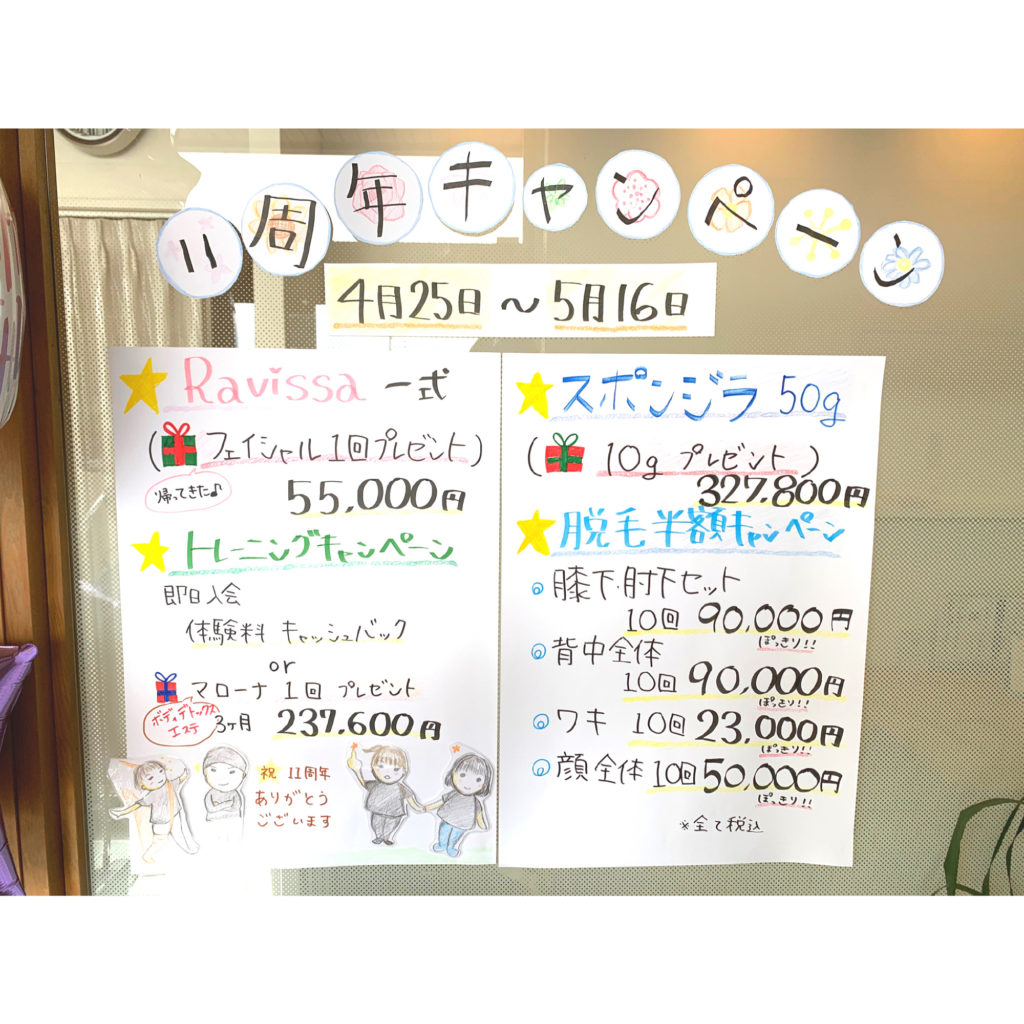 11周年キャンペーン
4月25日～5月16日
Ravissa 一式
(フェイシャル1回プレゼント)
帰ってきた♪
55,000円
トレーニングキャンペーン
即日入会
体験料 キャッシュバック
or
マローナ 1回 プレゼント
ボディデトックス
エステ
3ヶ月 237,600円
祝 11周年
ありがとう
ございます
スポンジラ 50g
(10g プレゼント)
327,800円
脱毛半額キャンペーン
膝下・肘下セット
10回 90,000円
ぽっきり!!
背中全体
10回 90,000円
ぽっきり!!
ワキ 10回 23,000円
ぽっきり!!
顔全体 10回 50,000円
ぽっきり!!
※全て税込